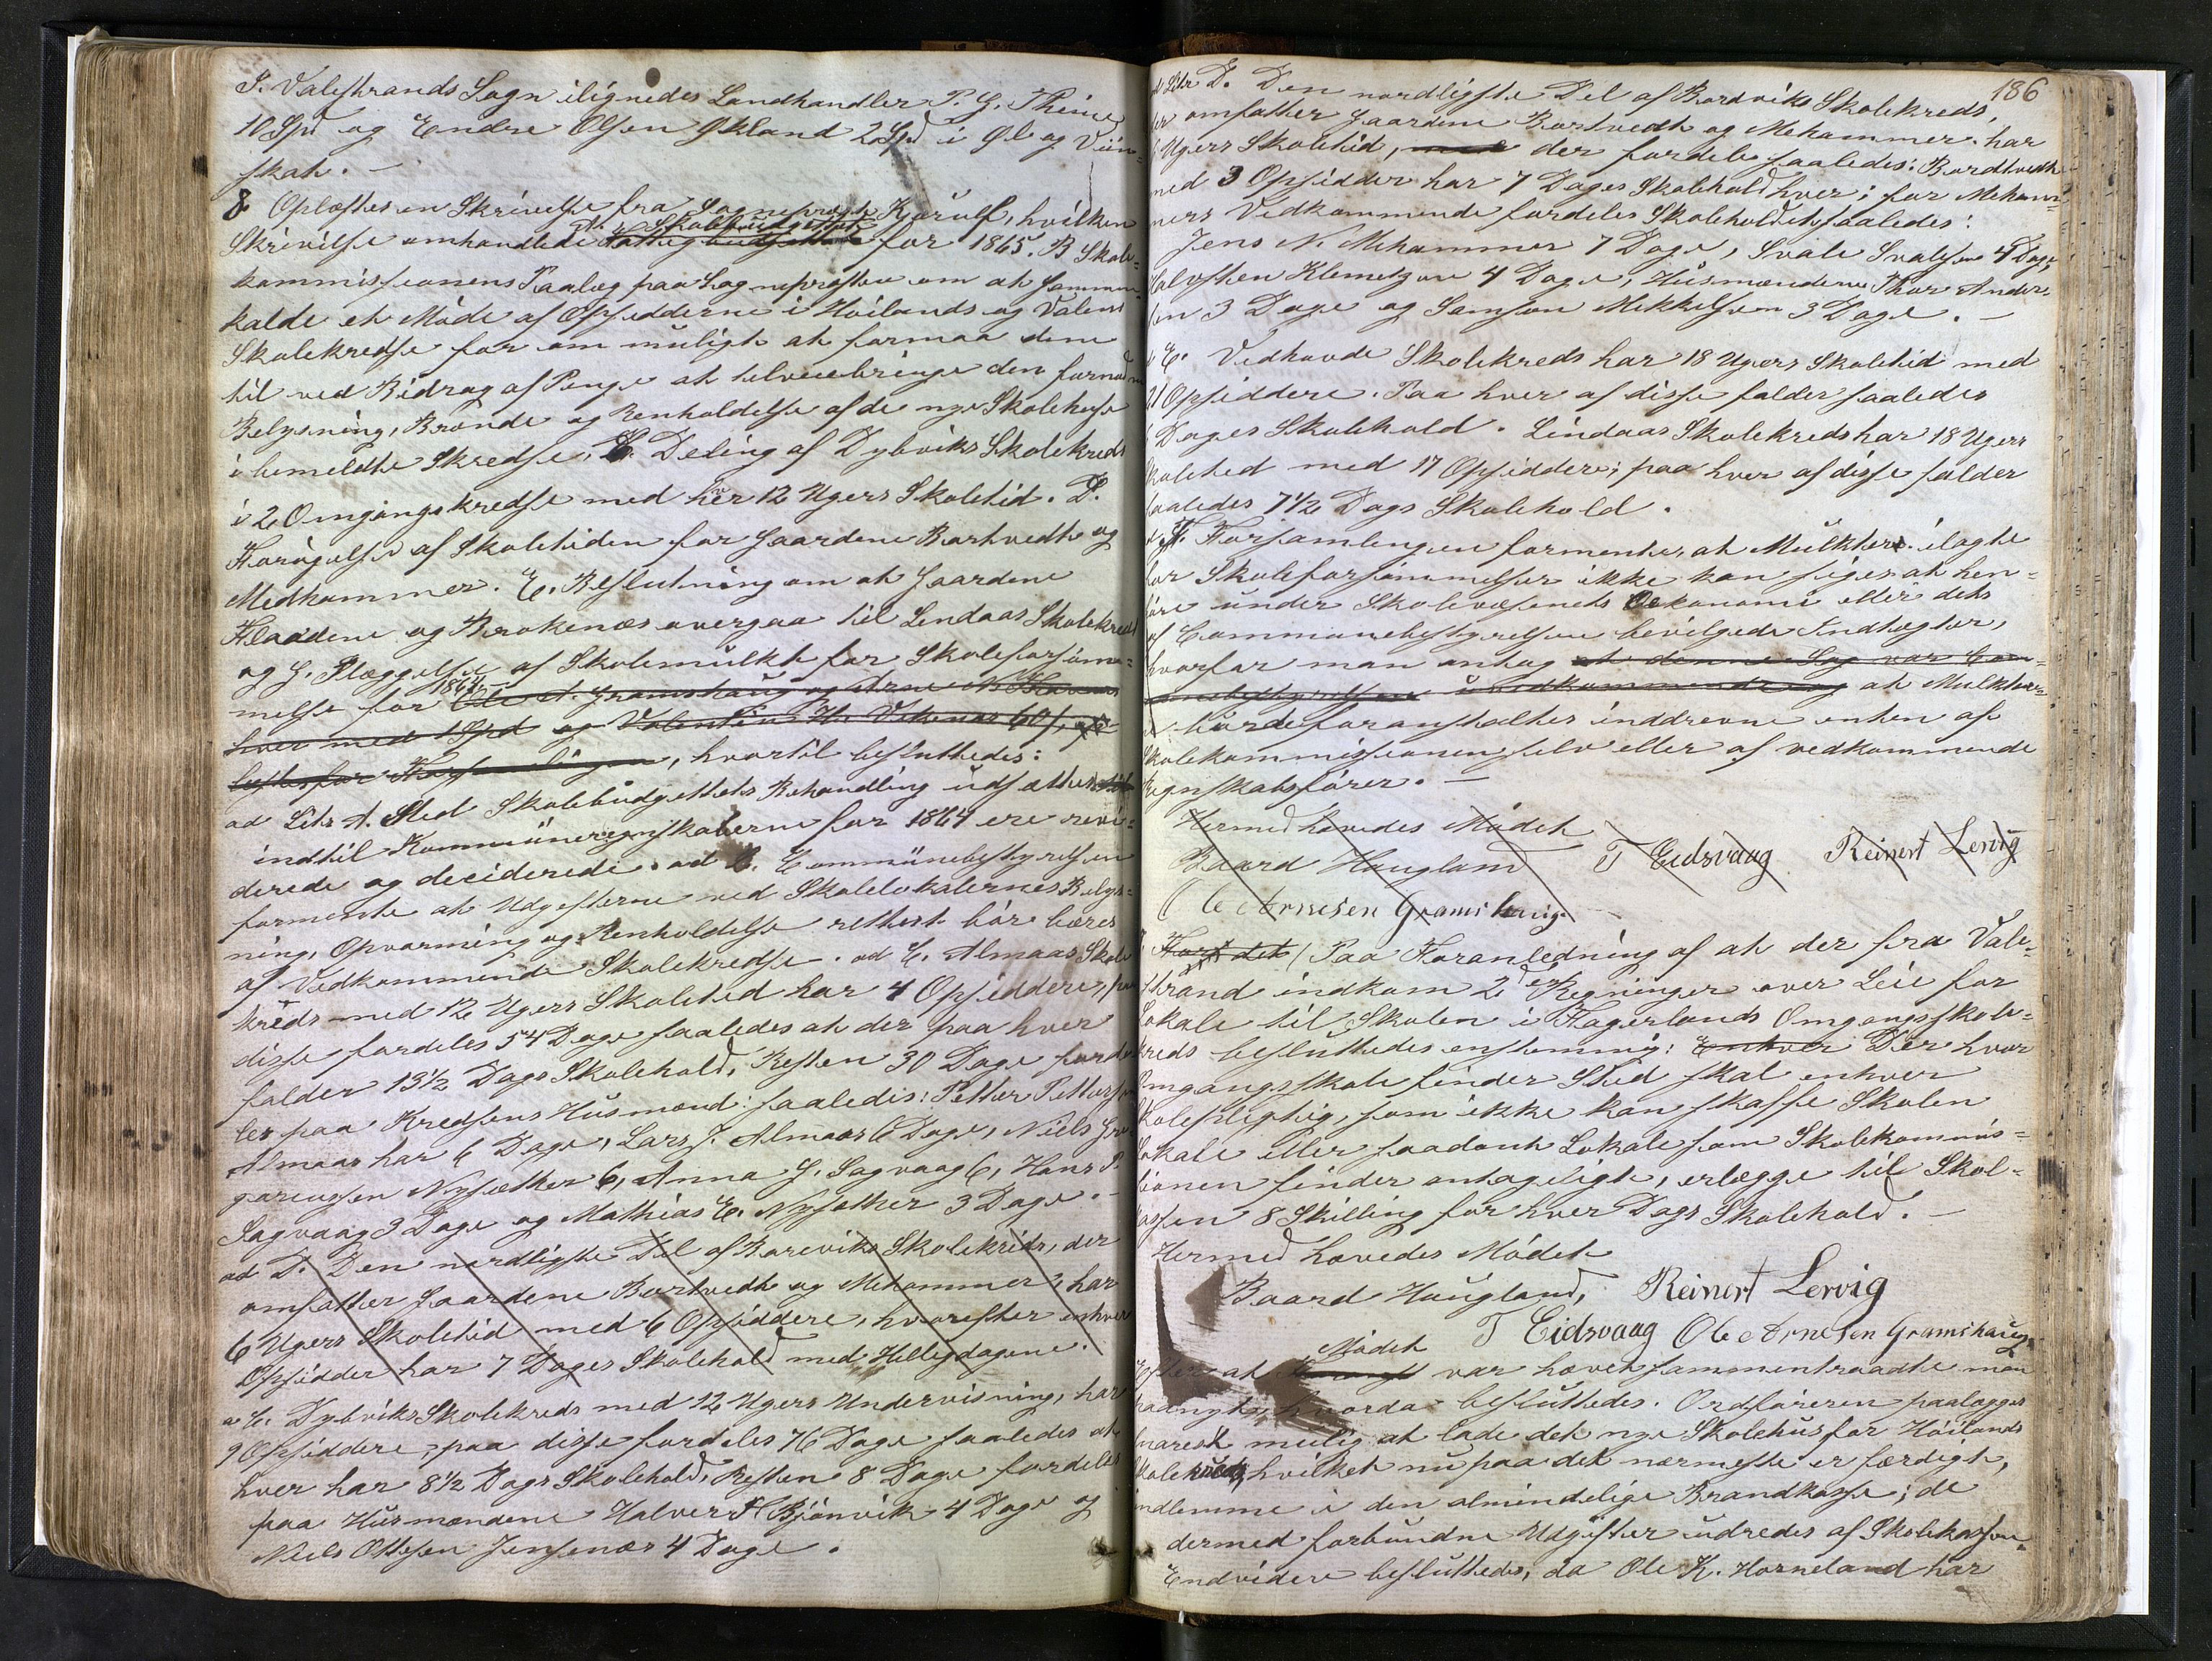 I. Valestrands Sogn ilignedes Landhandler P. G. Theine
10 Spd og Endre Olsen Økland 2 Spd i Øl og Viin-
skat. –
8 Oplæstes en Skrivelse fra Sognepræst Kjerulf, hvilken
Skrivelse omhandlede A. Skolebudgettet for 1865. B Skole-
kommissionens Paalæg paa Sognepræsten om at sammen-
kalde et Möde af Opsidderne i Höilands og Valens
Skolekredse for om muligt at formaa dem
til ved Bidrag af Penge at tilveiebringe den fornødne
Belysning, Brænde og Renholdelse af de nye Skolehuse
i bemeldte Skredse. C. Deling af Dybviks Skolekreds
i 2 Omgangskredse med hver 12 Ugers Skoletid. D.
Forögelse af Skoletiden for Gaardene Bortvedt og
Mehammer. E. Beslutning om at Gaardene
Flaadene og Brokenæs overgaa til Lindaas Skolekreds
og F. Ilæggelse af Skolemulkt for Skoleforsöm-
melse for 1864. – Ole A. Gramshaug og Arne N.
hver med 1 Spd og Valentin H. Vikenæs 60 s,
læstes for Forsamlingen, hvortil besluttedes:
ad Litr A. Med Skolebudgettets Behandling udsættes
indtil Kommuneregnskaberne for 1864 ere revi-
derede og deciderede. ad B. Communebestyrelsen
formente at Udgifterne ved Skolelokalernes Belys-
ning, Opvarming og Renholdelse rettest bör bæres
af Vedkommende Skolekredse. ad C. Almaas Skole
kreds med 12 Ugers Skoletid har 4 Opsiddere, paa
disse fordeles 54 Dage saaledes at der paa hver
falder 13½ Dags Skolehold, Resten 30 Dage forde
les paa Kredsens Husmænd: saaledis: Petter Petters
Almaas har 6 Dage, Lars J. Almaas 6 Dage, Niels Gre
goriussen Nysæther 6, Anna J. Sagvaag 6, Hans P.
Sagvaag 3 Dage og Mathias E. Nysæther 3 Dage. –
ad D. Den nordligste Del af Boreviks Skolekreds, der
omfatter Gaardene Bortvedt og Mehammer, har
6 Ugers Skoletid med 6 Opsiddere, hvorefter enhver
Opsidder har 7 Dages Skolehold med Helligdagene.
a C. Dybviks Skolekreds med 12 Ugers Undervisning, har
9 Opsiddere, paa disse fordeles 76 Dage saaledes at
hver har 8½ Dags Skolehold, Resten 8 Dage fordeles
paa Husmændene Halver H Björnvik 4 Dage og
Niels Ottesen Jensenæs 4 Dage.
186
d Litr D. Den nordligste Del af Bordviks Skolekreds,
der omfatter Gaardene Bortvedt og Mehammer har
6 Ugers Skoletid, med der fordeles saaledes: Bordtvedt
med 3 Opsidder har 7 Dages Skolehold hver; for Meham-
mers Vedkommende fordeles Skoleholdet saaledes:
Jens N. Mehammer 7 Dage, Svale Svalesen 4 Dage,
Halvsten Klemetsen 4 Dage, Husmændene Thor Ander-
sen 3 Dage og Samson Mikkelsen 3 Dage. –
d E. Vedhovde Skolekreds har 18 Ugers Skoletid med
21 Opsiddere. Paa hver af disse falder saaledes
6 Dages Skolehold. Lindaas Skolekreds har 18 Ugers
Skoletid med 17 Opsiddere; paa hver af disse falder
saaledes 7½ Dags Skolehold.
d F. Forsamlingen formente, at Mulkter ilagte
for Skoleforsömmelser ikke kan siges at hen-
höre under Skolevæsenets Oekonomi eller dets
af Communebestyrelsen bevilgede Indtægter,
hvorfor man antog at denne Sag var Com-
munebestyrelsen uvedkommende og at Mulkter-
ne burde foranstaltes inddrevne enten af
Skolekommissionen selv eller af vedkommende
Regnskabsförer. –
Hermed hævedes Mödet
Baard Haugland T Eidsvaag Reinert Lervig
Ole Arnesen Gramshaug
For det / Paa Foranledning af at der fra Vale-
strand indkom 2de Regninger over Leie for
Lokale til Skolen i Fagerlands Omgangsskole-
kreds besluttedes enstemmig: Enhver Der hvor
Omgangsskole finder Sted skal enhver
Skolepligtig, som ikke kan skaffe Skolen
Lokale eller saadant Lokale som Skolekommis-
sionen finder antageligt, erlægge til Skol-
kassen 8 Skilling for hver Dags Skolehold. –
Hermed hævedes Mödet
Baard Haugland, Reinert Lervig
T Eidsvaag Ole Arnesen Gramshaug
Efter at Mödet var hævet sammentraadte man
paanyt, hvorda besluttedes. Ordföreren paalægges
snarest mulig at lade det nye Skolehus for Höilands
Skolekreds, hvilket nu paa det nærmeste er færdigt,
indlemme i den almindelige Brandkasse; de
dermed forbundne Udgifter udredes af Skolekassen.
Endvidere besluttedes, da Ole K. Horneland har